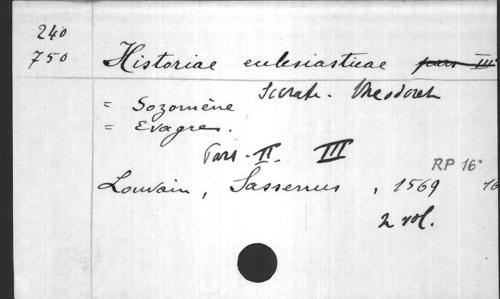 240
750
Historiae ecclesiasticae pars III
Socrate. Theodoret
= Sozomène
= Evagre.
Pars. II. III
RP 16°
Louvain, Sassenus, 1569 16
2 vol.